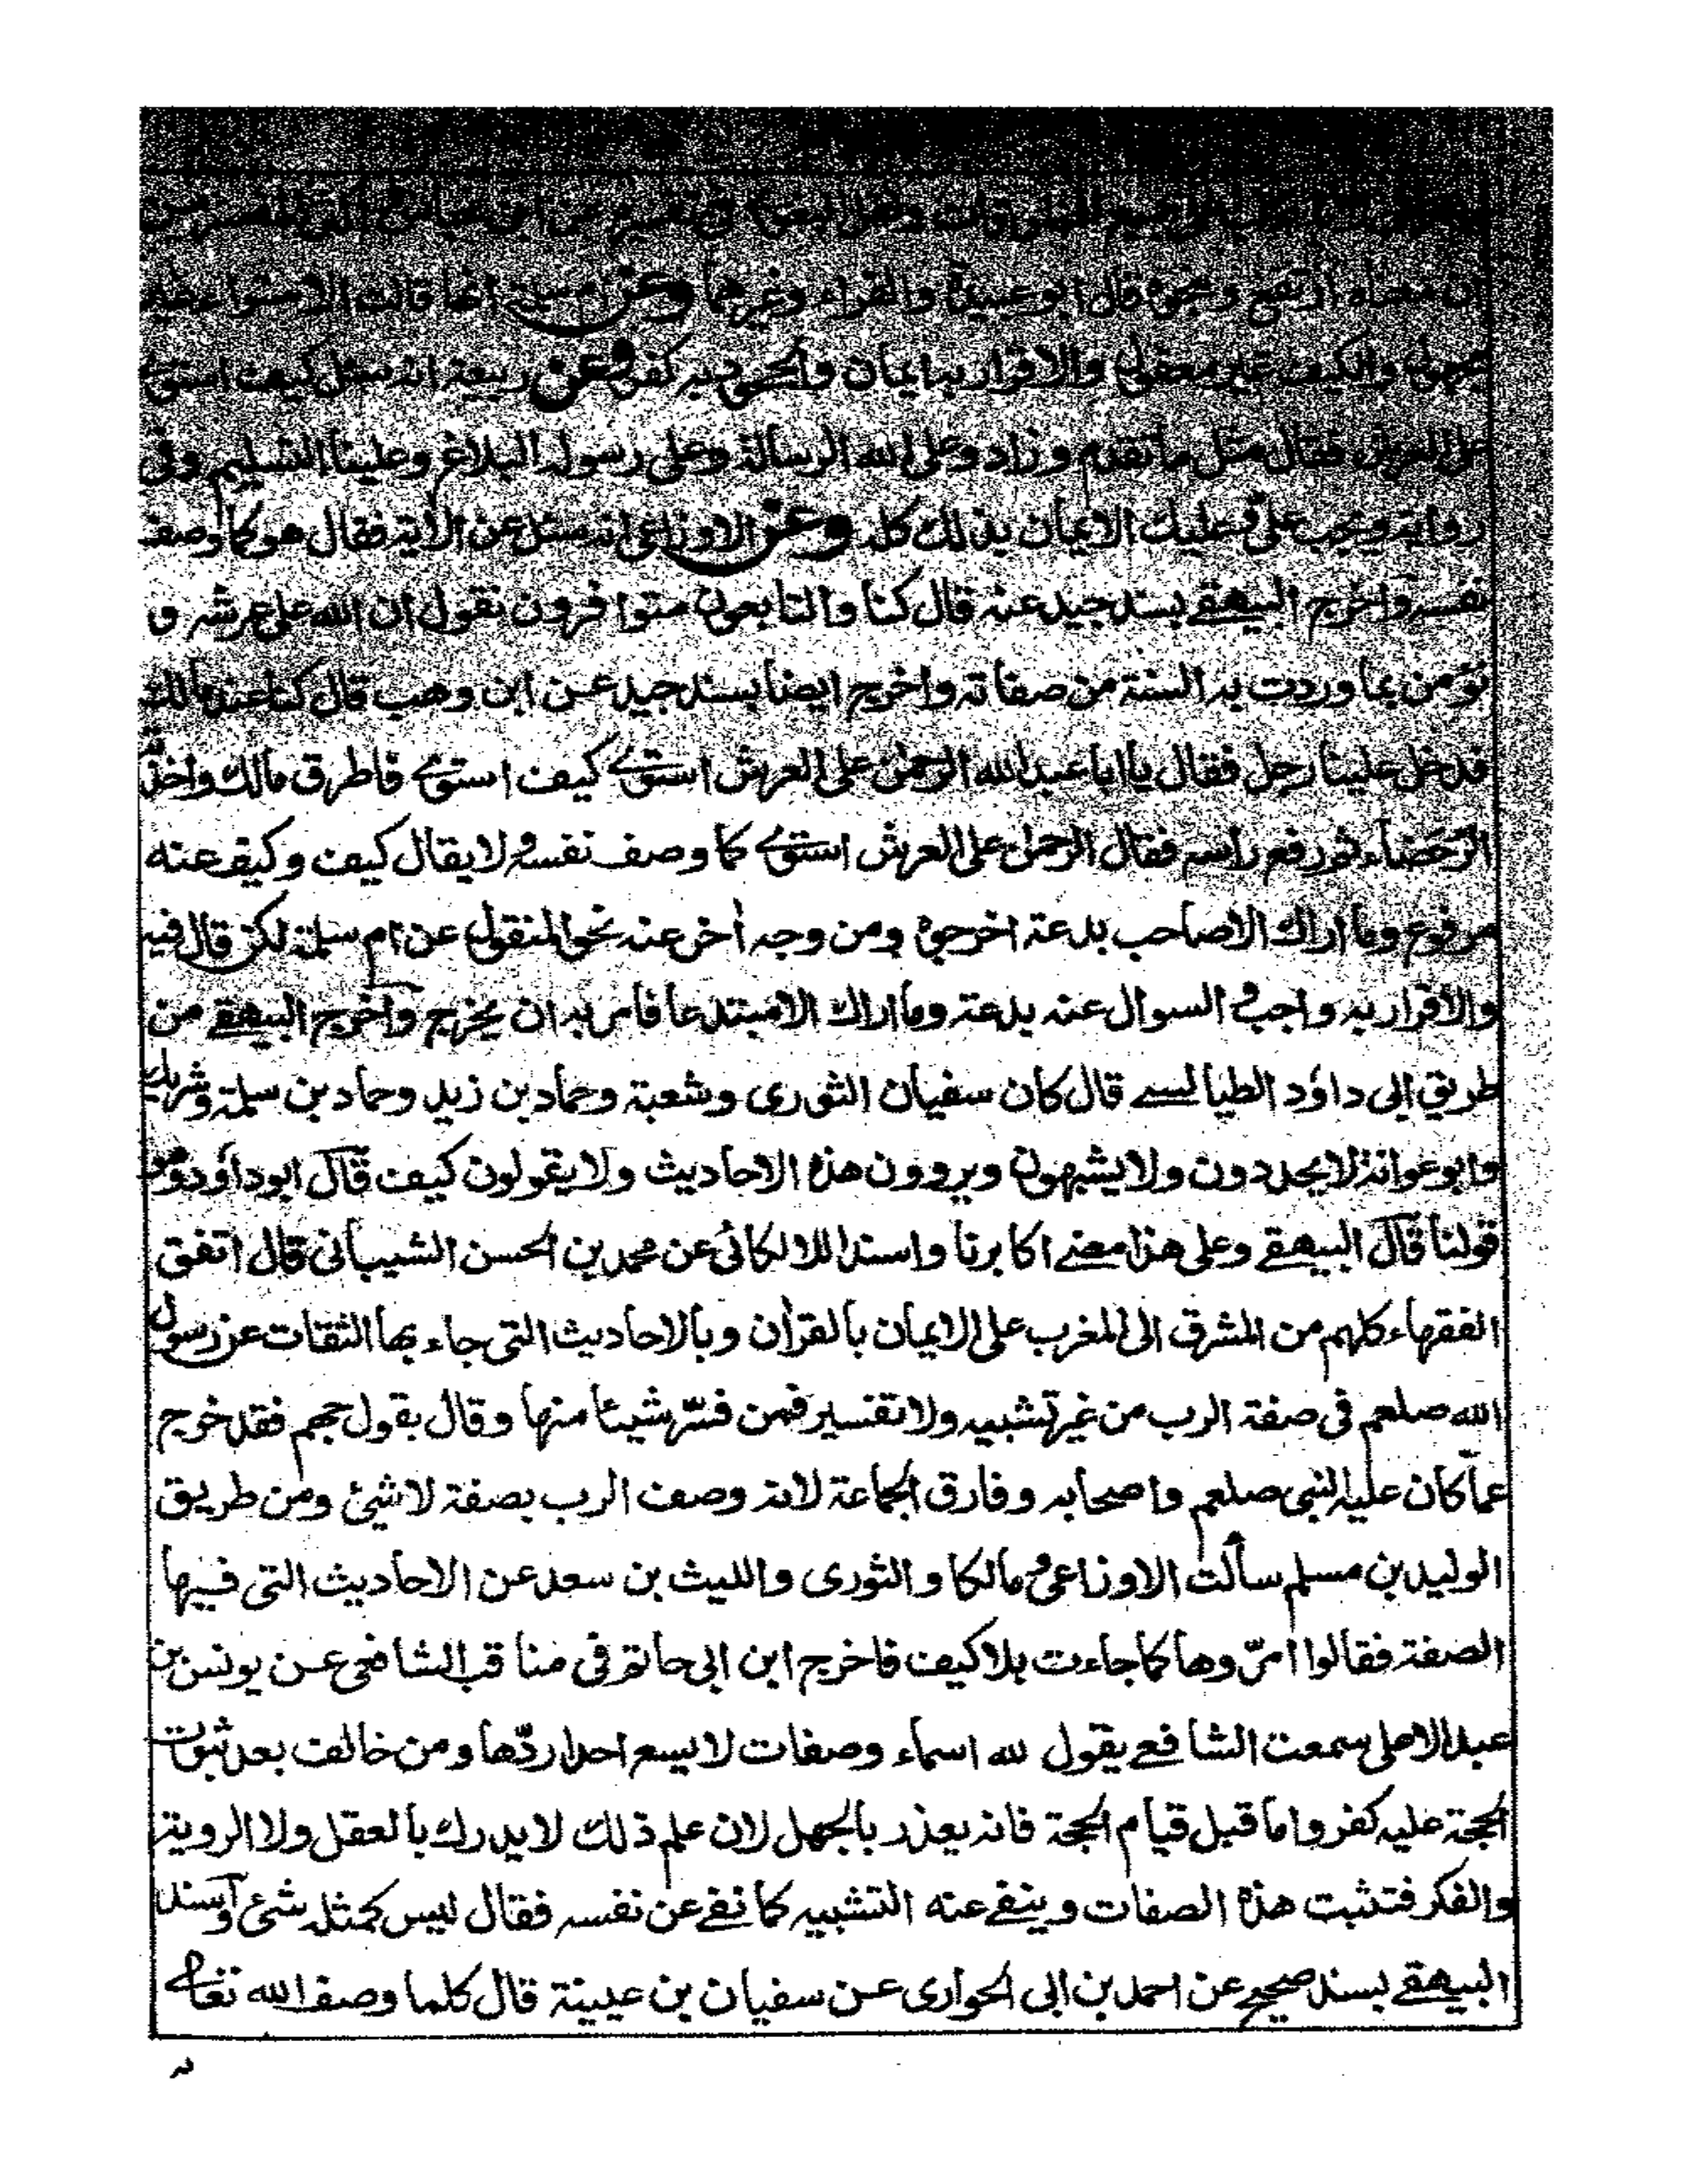 جميع المخلوقات ونقل البغوي في تفسيره عن ابن عباس واكثر المفسرين
ان معناه ارتفع ونحوه قال ابو عبيدة والفراء وغيرهما وعن ام سلمة انها قالت الاستواء غير
مجهول والكيف غير معقول والاقرار به ايمان والجحود به كفر وعن ربيعة انه سئل كيف استوى
على العرش فقال مثل ما تقدم وزاد وعلى الله الرسالة وعلى رسوله البلاغ وعلينا التسليم وفي
رواية ويجب علي وعليك الايمان بذلك كله وعن الاوزاعي انه سئل عن الاية فقال هو كما وصف
نفسه واخرج البيهقے بسند جيد عنه قال كنا والتابعون متوافرون نقول ان الله على عرشه و
نؤمن بما وردت به السنة من صفاته واخرج ايضا بسند جيد عن ابن وهب قال كنا عند مالك
فدخل علينا رجل فقال يا ابا عبد الله الرحمٰن على العرش استوے كيف استوے فاطرق مالك واخذته
الرحضاء ثم رفع راسه فقال الرحمٰن على العرش استوے كما وصف نفسه ولا يقال كيف وكيف عنه
مرفوع وما اراك الا صاحب بدعة اخرجوه ومن وجه أخر عنه نحو المنقول عن ام سلمة لكن قال فيه
والاقرار به واجب والسوال عنه بدعة وما اراك الا مبتدعا فامر به ان يخرج وأخرج البيهقے من
طريق ابي داؤد الطيالسے قال كان سفيان الثوري وشعبة وحماد بن زيد وحماد بن سلمة وشريك
وابو عوانة لا يحددون ولا يشبهون ويروون هذه الاحاديث ولا يقولون كيف قال ابو داؤد وهو
قولنا قال البيهقے وعلى هذا مضے اكابرنا واسند اللالكائي عن محمد بن الحسن الشيباني قال اتفق
الفقهاء كلهم من المشرق الى المغرب على الايمان بالقرأن وبالاحاديث التي جاء بها الثقات عن رسول
الله صلعم في صفة الرب من غير تشبيه ولا تفسير فمن فسّر شيئا منها وقال بقول جهم فقد خرج
عما كان عليه النبي صلعم واصحابه وفارق الجماعة لانه وصف الرب بصفة لا شيئ ومن طريق
الوليد بن مسلم سألت الاوزاعي ومالكا والثوري والليث بن سعد عن الاحاديث التي فيها
الصفة فقالوا امرّوها كما جاءت بلا كيف فاخرج ابن ابي حاتم في مناقب الشافعي عن يونس بن
عبد الاعلى سمعت الشافعے يقول لله اسماء وصفات لا يسع احدا ردّها ومن خالف بعد ثبوت
الحجة عليه كفر واما قبل قيام الحجة فانه يعذر بالجهل لان علم ذلك لا يدرك بالعقل ولا الروية
والفكر فتثبت هذه الصفات وينفے عنه التشبيه كما نفے عن نفسه فقال ليس كمثله شئ وأسند
البيهقے بسند صحيح عن احمد بن ابي الحواري عن سفيان بن عيينة قال كلما وصف الله تعالے
به